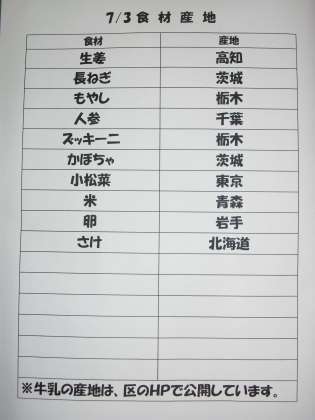 7/3 食 材 産 地
食材 産地
生姜 高知
長ねぎ 茨城
もやし 栃木
人参 千葉
ズッキーニ 栃木
かぼちゃ 茨城
小松菜 東京
米 青森
卵 岩手
さけ 北海道
※牛乳の産地は、区のHPで公開しています。